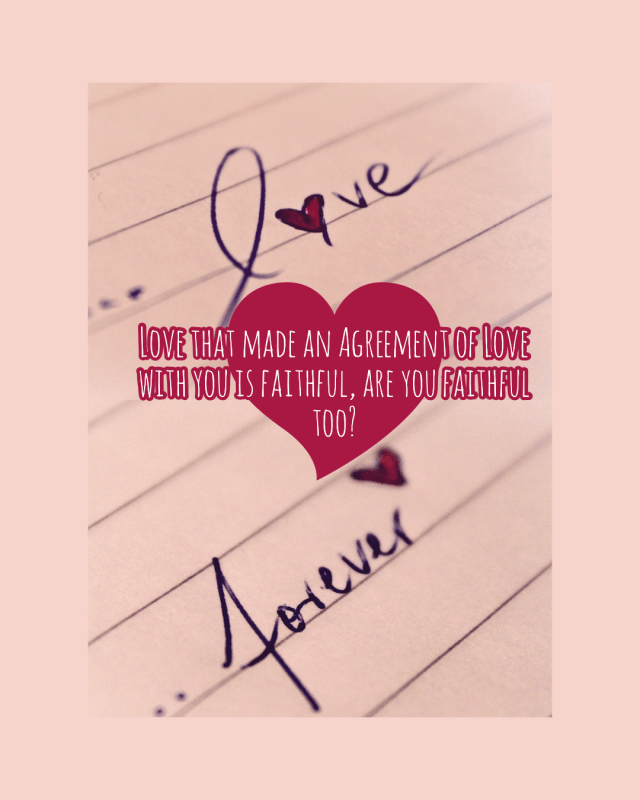 ... love
Love that made an Agreement of Love
with you is faithful, are you faithful
too?
.. forever